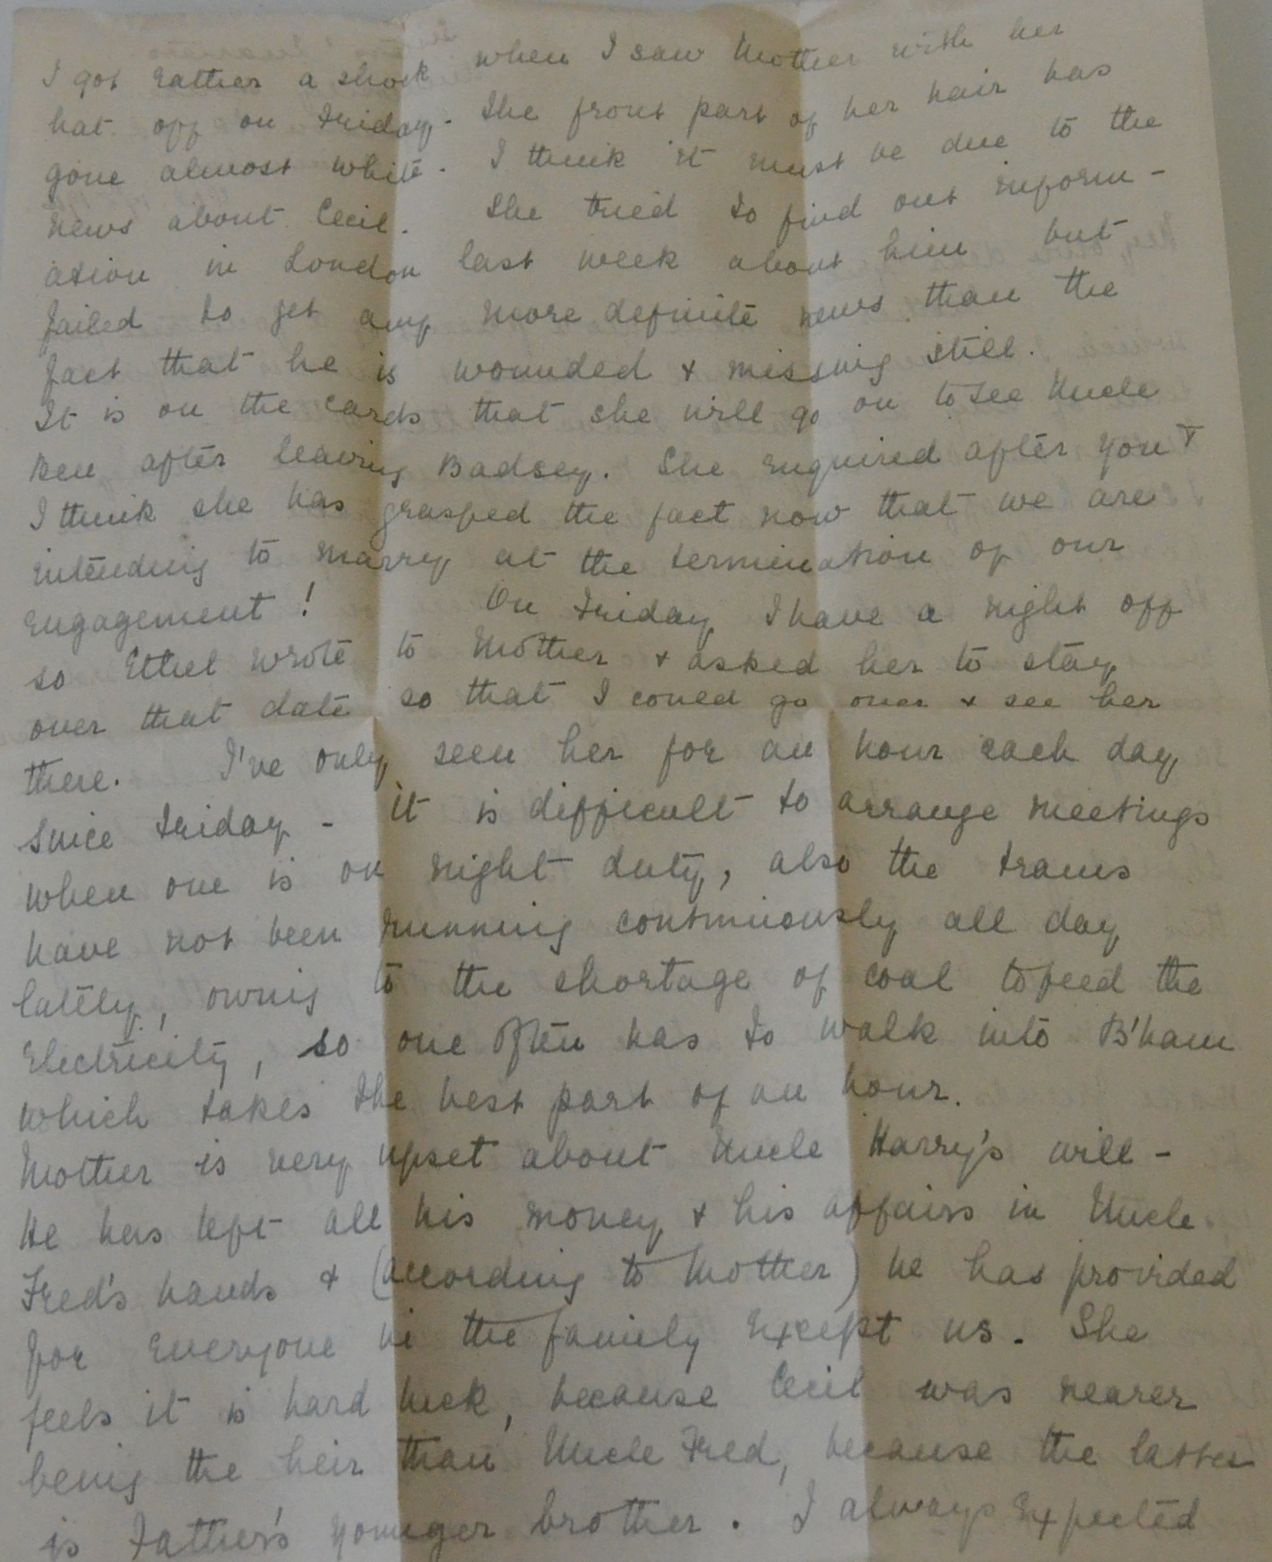 I got rather a shock when I saw Mother with her
hat off on Friday. The front part of her hair has
gone almost white. I think it must be due to the
news about Cecil. She tried to find out inform-
ation in London last week about him but
failed to get any more definite news than the
fact that he is wounded & missing still.
It is on the cards that she will go on to see Uncle
Ben after leaving Badsey. She enquired after you &
I think she has grasped the fact now that we are
intending to marry at the termination of our
engagement! On Friday I have a night off
so Ethel wrote to Mother & asked her to stay
over that date so that I could go over & see her
there. I've only seen her for an hour each day
since Friday - it is difficult to arrange meetings
when one is on night duty, also the trams
have not been running continuously all day
lately, owing to the shortage of coal to feed the
electricity, so one often has to walk into B'ham
which takes the best part of an hour.
Mother is very upset about Uncle Harry's will -
He has left all his money & his affairs in Uncle
Fred's hands & (according to Mother) he has provided
for everyone in the family except us. She
feels it is hard luck, because Cecil was nearer
being the heir than Uncle Fred, because the latter
is Father's younger brother. I always expected